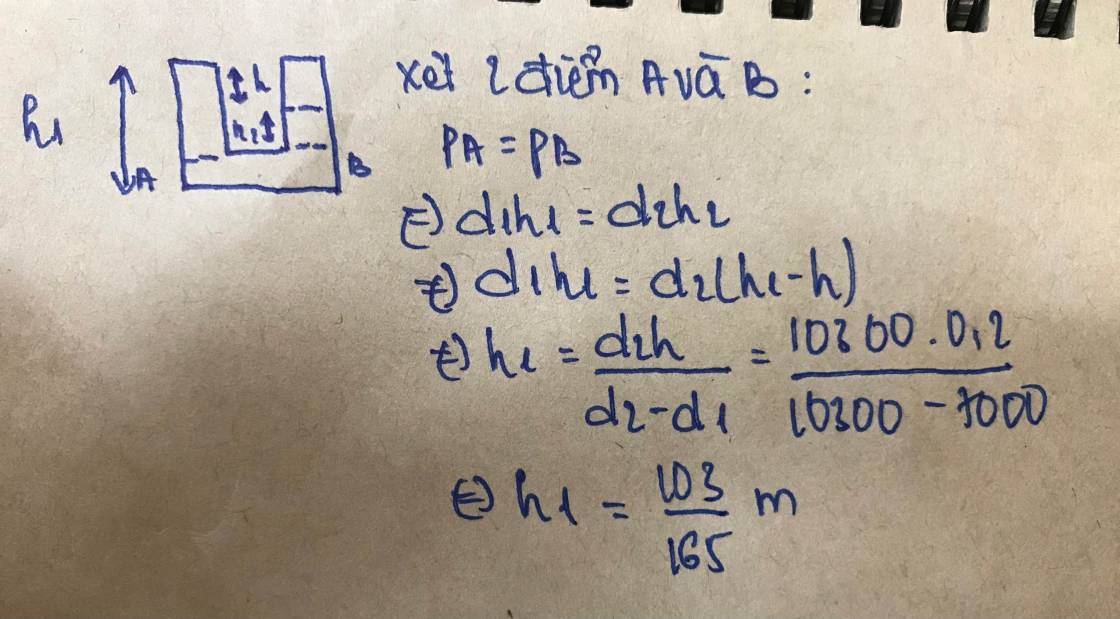 h1
A
h
h2
B
xét 2 điểm A và B :
PA = PB
⇔) d1h1 = d2h2
⇔) d1h1 = d2(h1-h)
⇔) h1 = d2h / d2-d1 = 10300.0,2 / 10300-7000
⇔) h1 = 103 / 165 m